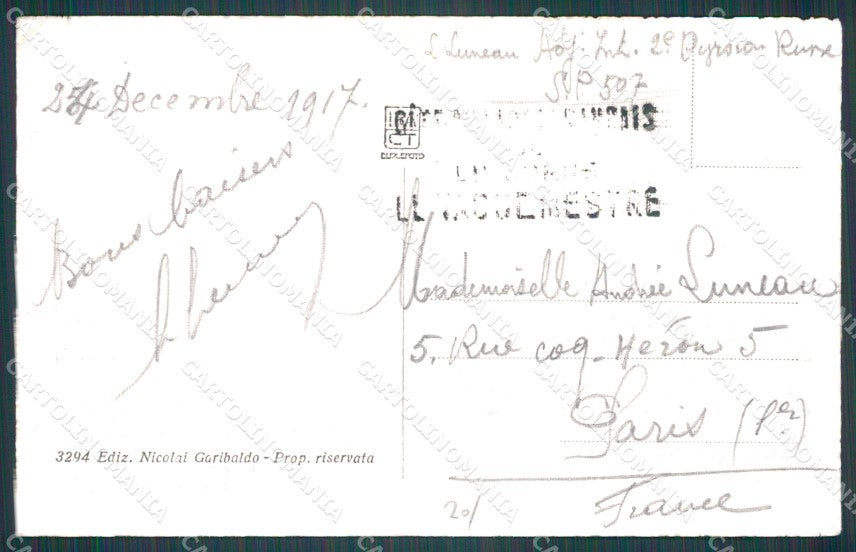 L Luneau Adj. Int. 2e Dyvision Russe
SP 507
24 Decembre 1917.
Bons baisers
LE VAGUEMESTRE
Mademoiselle Andrée Luneau
5. Rue coq-Héron 5
Paris (1er)
France
20/
3294 Ediz. Nicolai Garibaldo - Prop. riservata
CARTOLINOMANIA